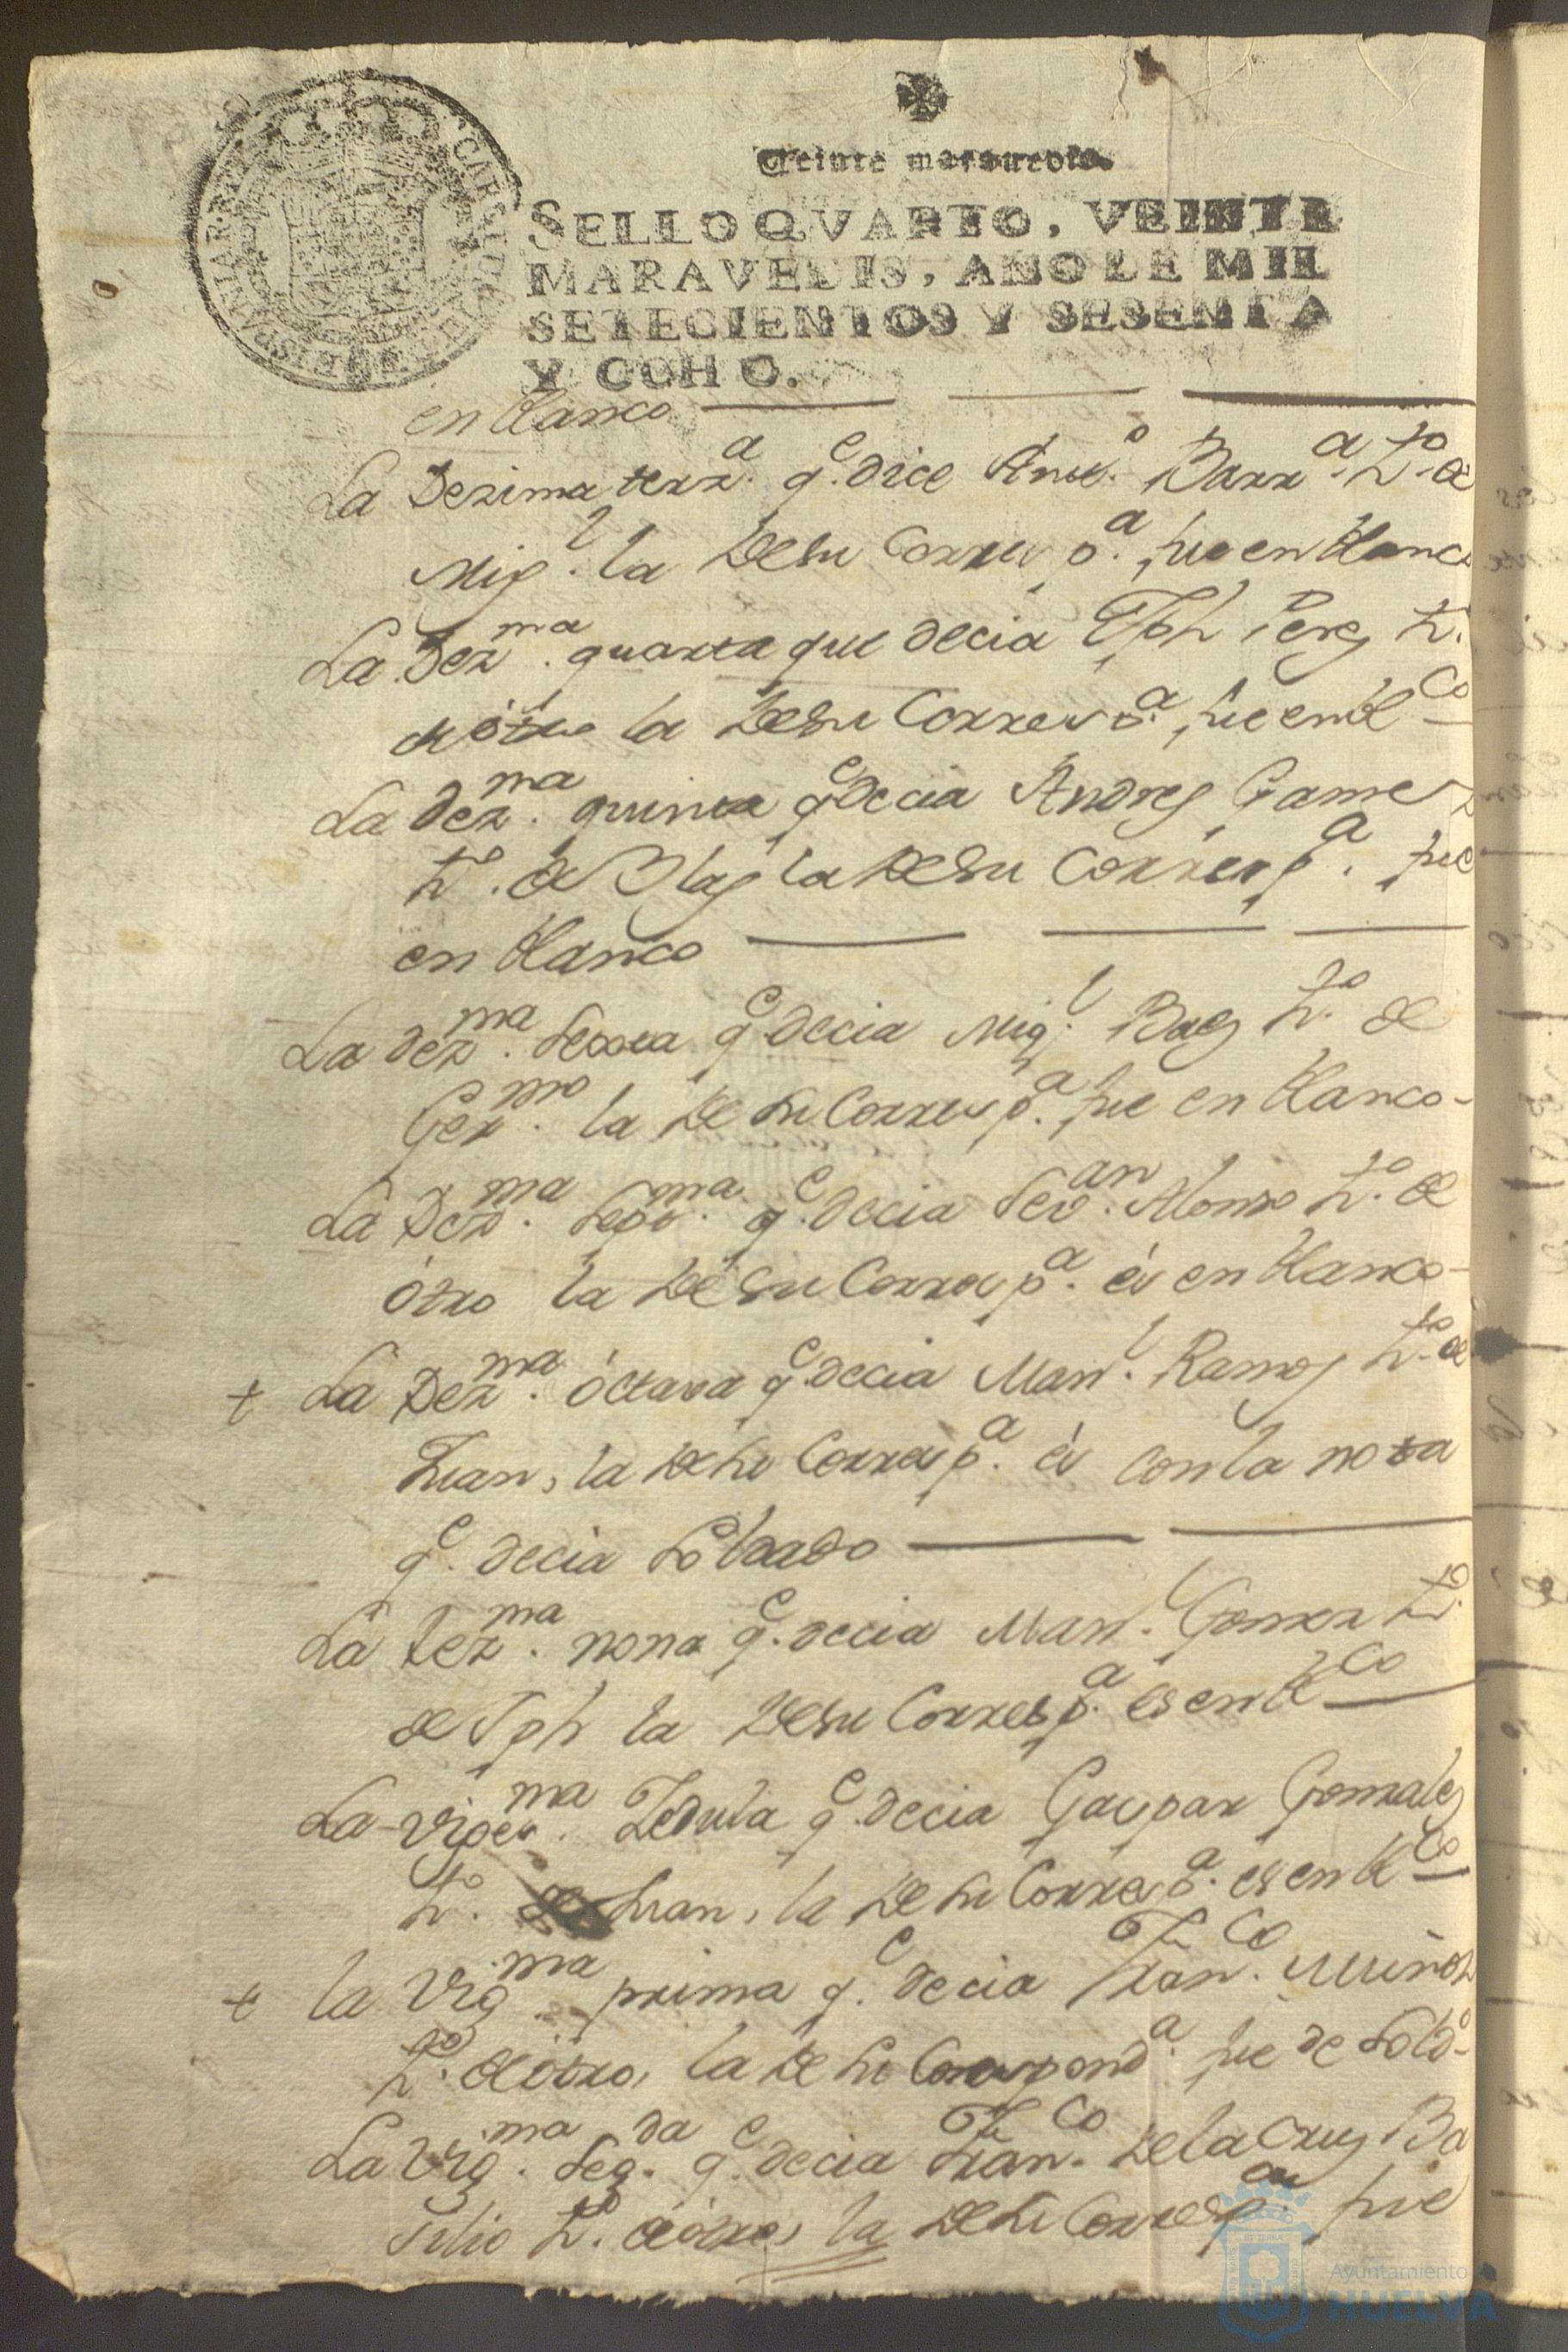 Veinte maravedis.
SELLO QVARTO, VEINTE
MARAVEDIS, AÑO DE MIL
SETECIENTOS Y SESENTA
Y OCHO.
en blanco
La Dezima terz.ª q.e dice Ant.o Barr.a h.o de
Mig.l la de su Corresp.a fue en blanco
La Dez.ma quarta que decia Jph Perez h.o
de otro la de su Corresp.a fue en bl.co
La dez.ma quinta q.e decia Andres Gamez
h.o de Blas la de su Corresp.a fue
en blanco
La dez.ma sexta q.e decia Mig.l Baez h.o de
Ger.mo la de su Corresp.a fue en blanco
La Dez.ma Sep.ma q.e decia Sev.an Alonso h.o de
otro la de su Corresp.a es en blanco
+ La Dez.ma octava q.e decia Man.l Ramos h.o de
Juan, la de su Corresp.a es con la nota
q.e decia Soldado
La Dez.ma nona q.e decia Man.l Gomez h.o
de Jph la de su Corresp.a es en bl.co
La Viges.ma Zedula q.e decia Gaspar Gonzales
h.o de Juan, la de su Corresp.a es en bl.co
+ la Vig.ma prima q.e decia Fran.co Muñoz
h.o de otro, la de su Correspond.a fue de Sold.o
La Vig.ma Seg.da q.e decia Fran.co de la Cruz Ba
silio h.o de otro, la de su Corresp.a fue
Ayuntamiento de
HUELVA